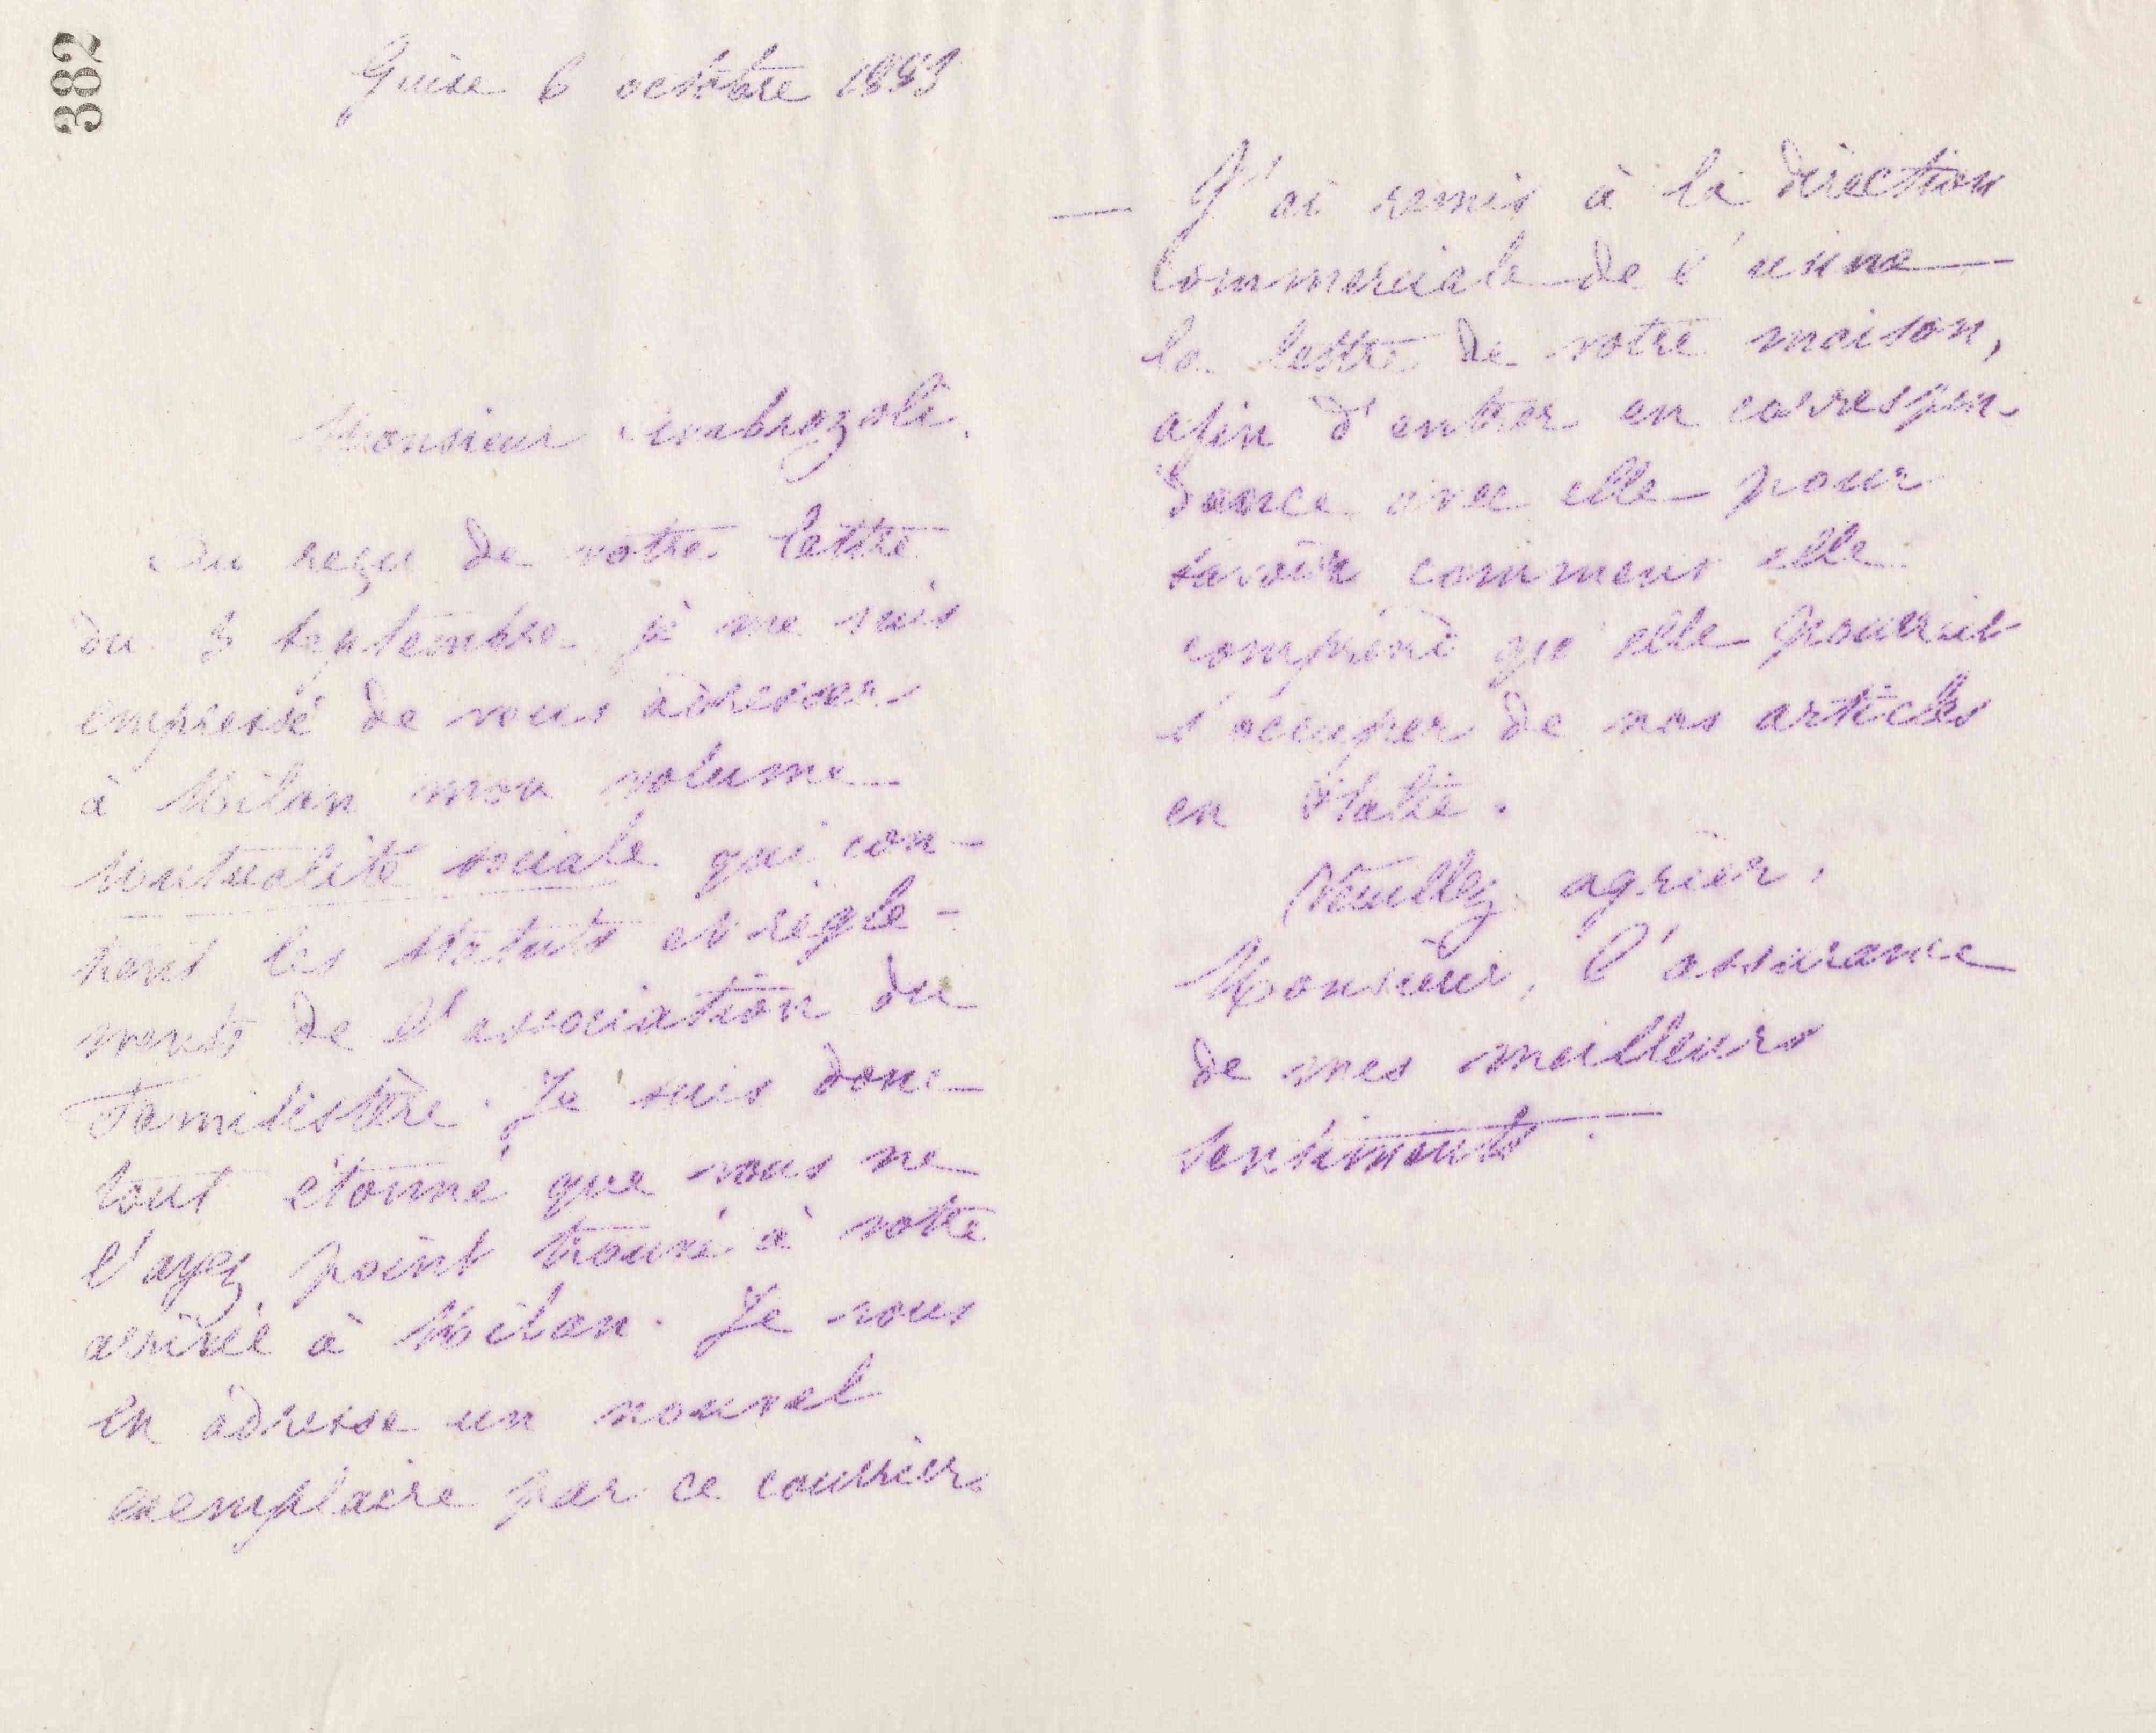 382
Guise 6 octobre 1883
Monsieur Ambrozoli.
Au reçu de votre lettre
du 3 septembre je me suis
empressé de vous adresser
à Milan mon volume
Mutualité sociale qui con-
tient les statuts et règle-
ments de l'association du
Familistère. Je suis donc
tout étonné que vous ne
l'ayez point trouvé à votre
arrivée à Milan. Je vous
en adresse un nouvel
exemplaire par ce courrier.
— J'ai remis à la direction
Commerciale de l'usine
la lettre de votre maison,
afin d'entrer en correspon-
dance avec elle pour
savoir comment elle
comprend qu'elle pourrait
s'occuper de nos articles
en Italie.
Veuillez agréer,
Monsieur, l'assurance
de mes meilleurs
sentiments.